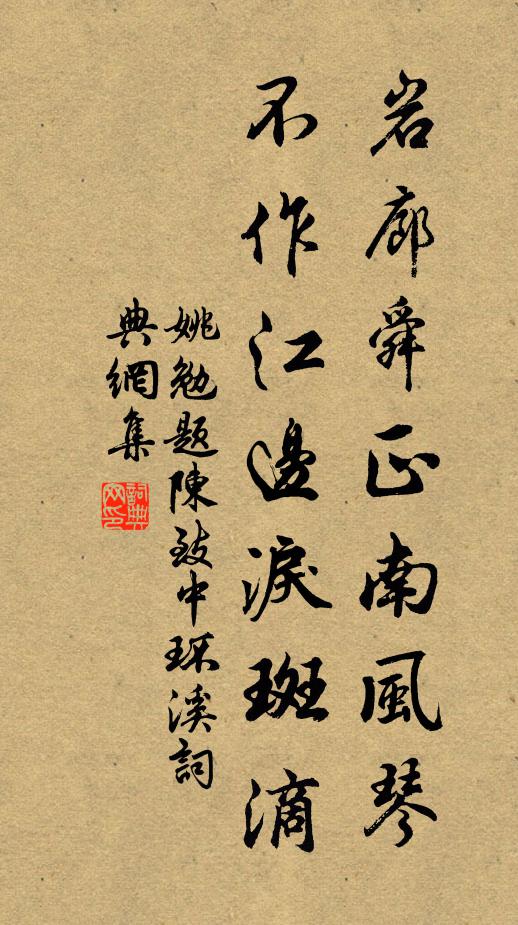 岩廊舜正南風琴
不作江邊淚斑滴
姚勉題陳致中琛溪詞
典網集
詞典網印